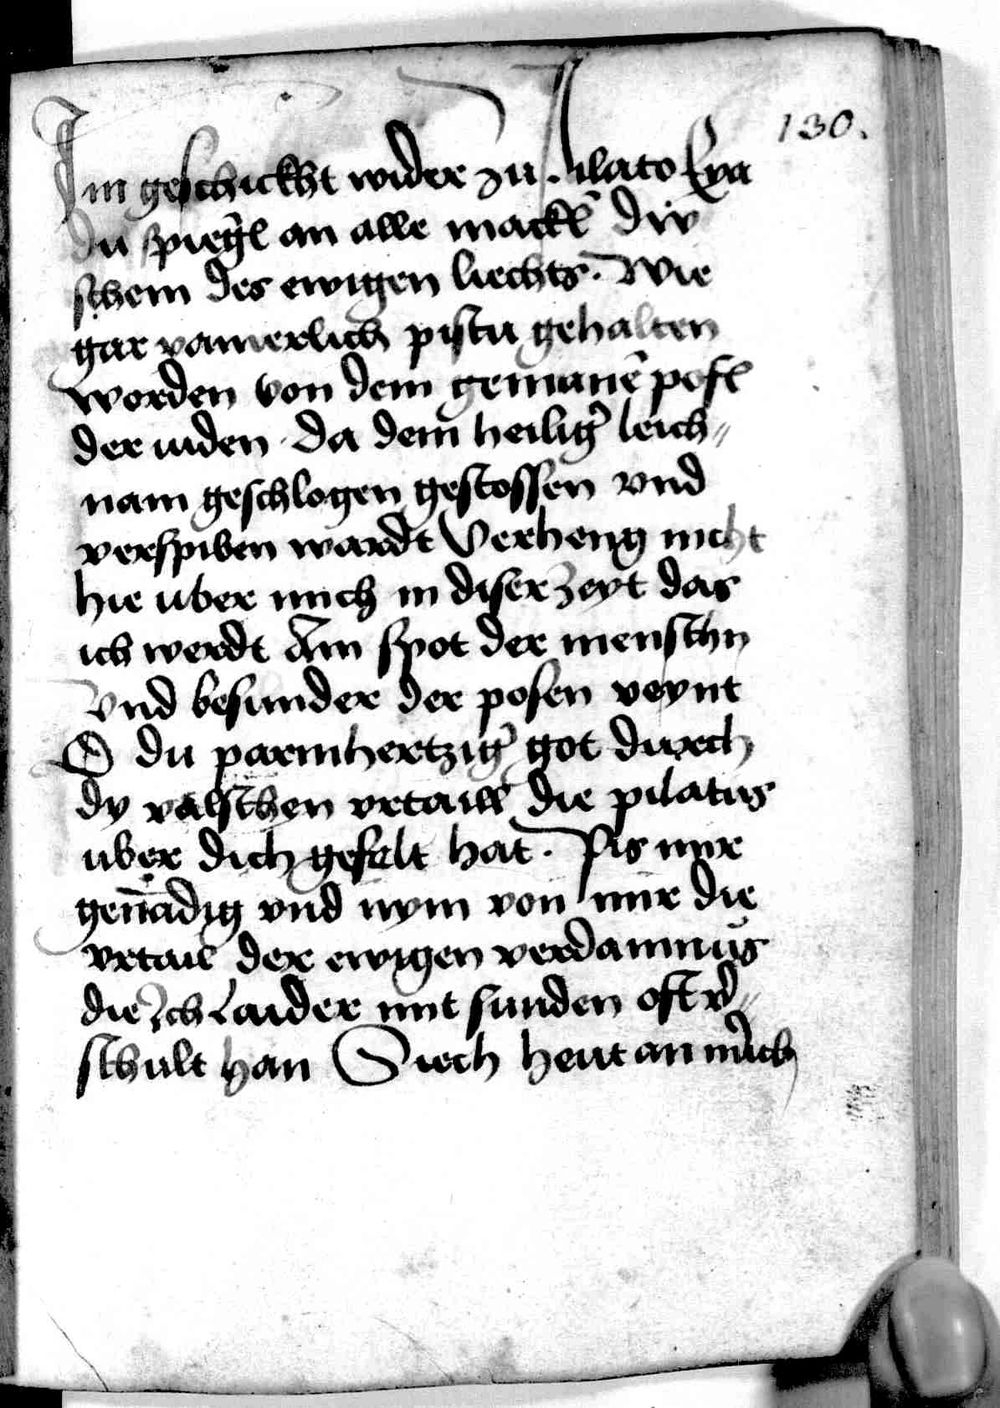 130.
Im geschickht wider zu Pilato Eya
du spiegl an alle mackl̄ diw
schein des ewigen liechts. Wie
gar iamerlich pistu gehalten
worden von dem gemainē pofl
der iuden. Da dein heiligr̄ leich⸗
nam geschlogen gestossen vnd
verspiben wardt Verheng nicht
hie uber mich in diser zeyt das
ich werdt Ain spot der menschn
Vnd besunder der posen veynt
O du parmhertzigr̄ got durch
dy valschen vrtaill die pilatus
uber dich gefelt hat. Pis mir
gen̄adig vnd nym von mir die
vrtail der ewigen verdamnus
die Ich Laider mit sunden oft vr̄⸗
schult han Siech heut an mich